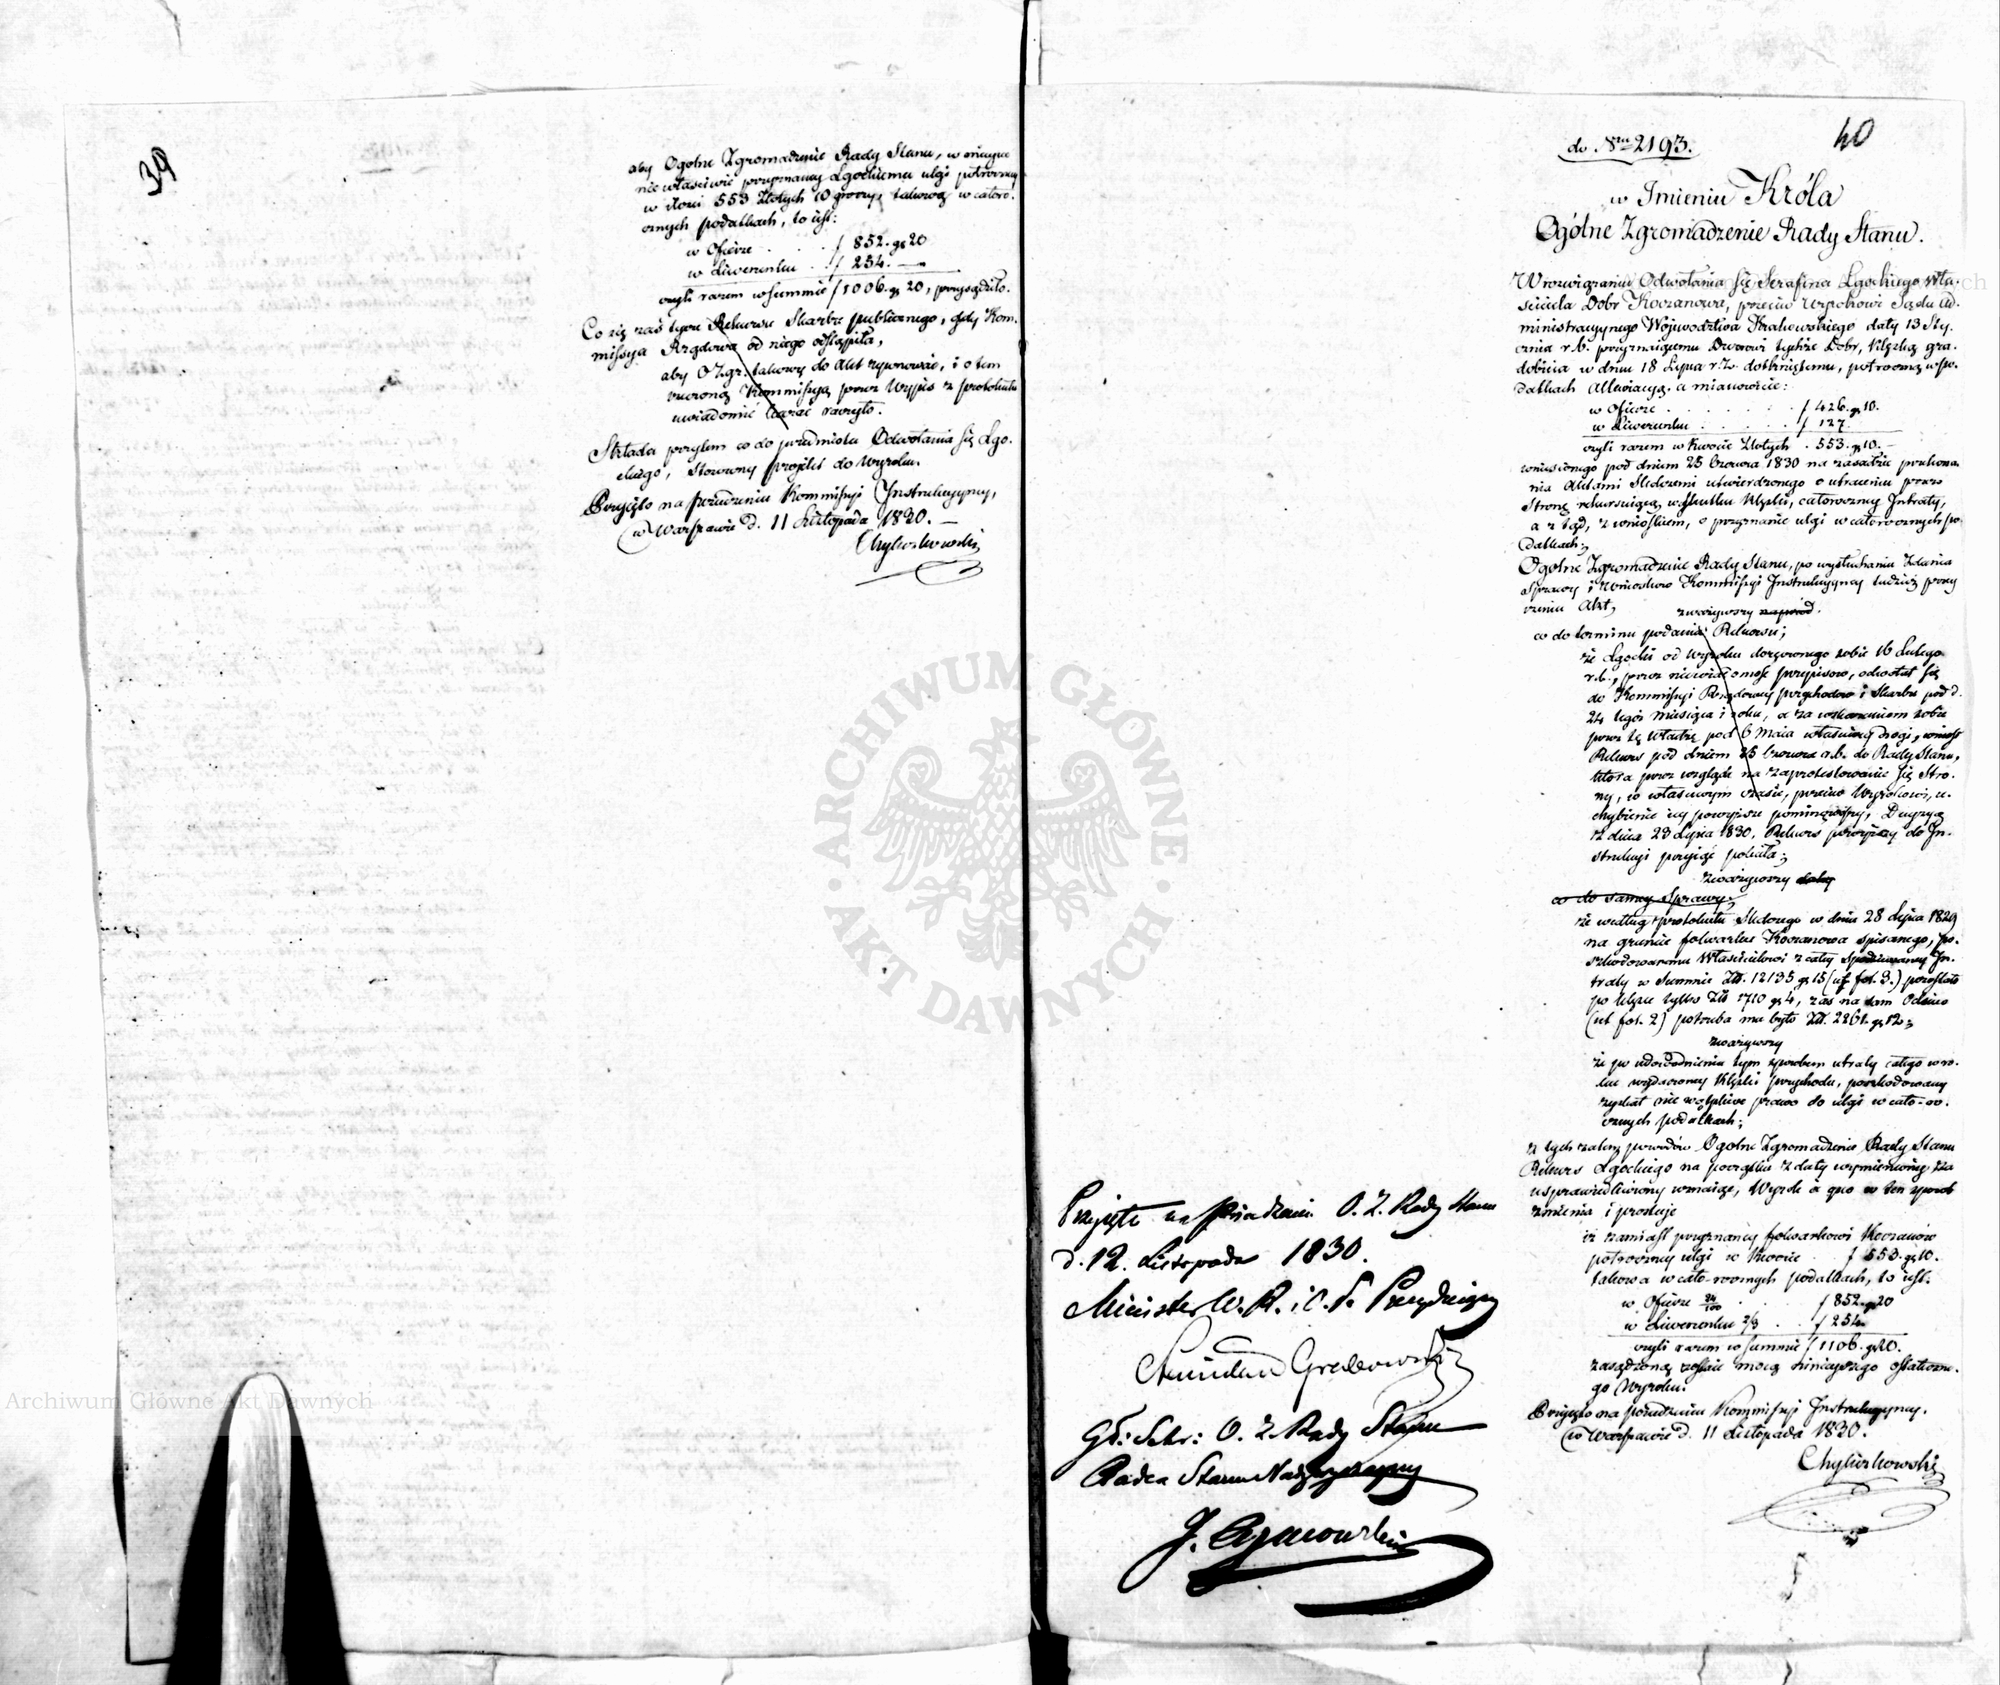 39
aby Ogolne Zgromadzenie Rady Stanu, w mieysce
niewłaściwie przyznaney Lgockiemu ulgi półroczney
w ilości 553 Złotych 10 groszy, takową w całoro-
cznych podatkach, to iest:
w Ofierze . . . f 852. gr 20
w Liwerunku . f 254. —
czyli razem w Summie f 1006. gr 20, przysądziło.
Co się zaś tycze Rekursu Skarbu publicznego, gdy Kom-
missya Rządowa od niego odstąpiła,
aby O. Zgr. takowy do Akt reponować, i o tem
rzeczoną Kommissyą przez Wypis z protokułu
uwiadomić kazać raczyło.
Składa przytem co do przedmiotu Odwołania się Lgo-
ckiego, stosowny projekt do Wyroku.
Przyjęto na posiedzeniu Kommissyi Instrukcyyney,
w Warszawie d. 11 Listopada 1830. —
Chyliczkowski
40
do Nru 2193.
w Imieniu Króla
Ogólne Zgromadzenie Rady Stanu.
W rozwiązaniu Odwołania się Serafina Lgockiego Wła-
ściciela Dobr Koczanowa, przeciw Wyrokowi Sądu Ad-
ministracyynego Województwa Krakowskiego daty 13 Sty-
cznia r. b. przyznaiącemu Dworowi tychże Dobr, klęską gra-
dobicia w dniu 18 Lipca r. z. dotkniętemu, półroczną w po-
datkach Allewiacyą, a mianowicie:
w Ofierze . . . . . . f 426. gr 10.
w Liwerunku . . . . . f 127.
czyli razem w kwocie Złotych . 553. gr 10. —
wniesionego pod dniem 25 Czerwca 1830 na zasadzie przekona-
nia Aktami Śledczemi utwierdzonego o utraceniu przez
Stronę rekursuiącą, w skutku klęski, całoroczney Intraty,
a z tąd, z wnioskiem, o przyznanie ulgi w całorocznych po-
datkach;
Ogólne Zgromadzenie Rady Stanu, po wysłuchaniu Zdania
Sprawy i wniosków Kommissyi Instrukcyyney tudzież przey-
rzeniu Akt,
zważywszy naprzód.
co do terminu podania Rekursu;
że Lgocki od Wyroku doręczonego sobie 16 Lutego
r. b., przez nieświadomość przepisów, odwołał się
do Kommissyi Rządowey Przychodów i Skarbu pod d.
24 tegoż miesiąca i roku, a za wskazaniem sobie
przez tę Władzę pod 6 Maia właściwey drogi, wniósł
Rekurs pod dniem 25 Czerwca r. b. do Rady Stanu,
która przez wzgląd na zaprotestowanie się Stro-
ny, w właściwym czasie, przeciw Wyrokowi, u-
chybienie iey powyższe pominąwszy, Decyzyą
z dnia 23 Lipca 1830. Rekurs powyższy do In-
strukcyi przyiąć poleciła;
zważywszy daley
co do samey Sprawy;
że według protokułu Śledczego w dniu 28 Lipca 1829
na gruncie folwarku Koczanowa spisanego, po-
szkodowanemu Właścicielowi z całey spodziewaney In-
traty w Summie Zł. 12135 gr 15 (ut fol. 3.) pozostało
po klęsce tylko Zł. 1710 gr 4, zaś na sam Odsiew
(ut fol. 2) potrzeba mu było Zł. 2261. gr 12;
zważywszy
że po udowodnieniu tym sposobem utraty całego w ro-
ku wydarzoney klęski przychodu, poszkodowany
zyskał niewątpliwe prawo do ulgi w cało-ro-
cznych podatkach;
z tych zatem powodów Ogólne Zgromadzenie Rady Stanu
Rekurs Lgockiego na początku z daty wymieniony za
usprawiedliwiony uznaiąc, Wyrok a quo w ten sposób
zmienia i prostuje
iż zamiast przyznaney folwarkowi Koczanow
półroczney ulgi w kwocie . f 553. gr 10.
takowa w cało-rocznych podatkach, to iest:
w Ofierze 24/100 . . . f 852. gr 20
w Liwerunku 2/3 . . f 254
czyli razem w Summie f 1106. gr 20.
zasądzoną zostaie mocą ninieyszego ostateczne-
go Wyroku.
Przyjęto na posiedzeniu Kommissyi Instrukcyyney.
w Warszawie d. 11 Listopada 1830.
Chyliczkowski
Przyjęte na posiedzeniu O. Z. Rady Stanu
d. 12. Listopada 1830.
Minister W. R. i O. P. Prezydujący
Stanisław Grabowski
Gł: Sekr: O. Z. Rady Stanu
Radca Stanu Nadzwyczayny
ARCHIWUM GŁÓWNE AKT DAWNYCH
Archiwum Główne Akt Dawnych